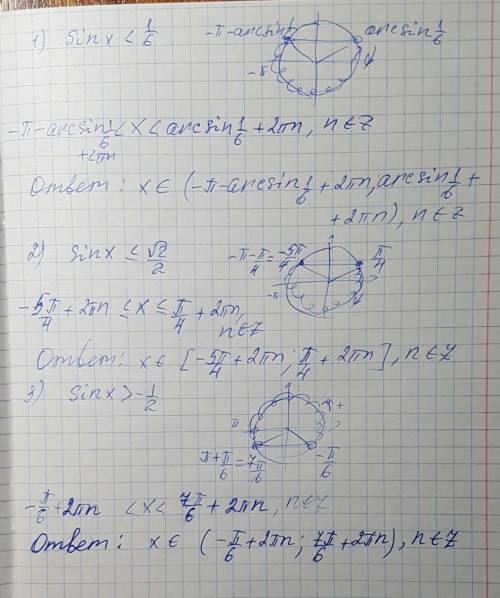 1) sin x < 1/6
-π-arcsin 1/6 arcsin 1/6
-π
-π-arcsin 1/6 < x < arcsin 1/6 + 2πn, n∈Z
+2πn
Ответ: x ∈ (-π-arcsin 1/6 + 2πn, arcsin 1/6 +
+2πn), n∈Z
2) sin x ≤ √2/2
-π-π/4 = -5π/4 π/4
-π
-5π/4 + 2πn ≤ x ≤ π/4 + 2πn,
n∈Z
Ответ: x ∈ [-5π/4 + 2πn; π/4 + 2πn], n∈Z
3) sin x > -1/2
π +
π+π/6 = 7π/6 -π/6
-π/6 + 2πn < x < 7π/6 + 2πn, n∈Z
Ответ: x ∈ (-π/6 + 2πn; 7π/6 + 2πn), n∈Z